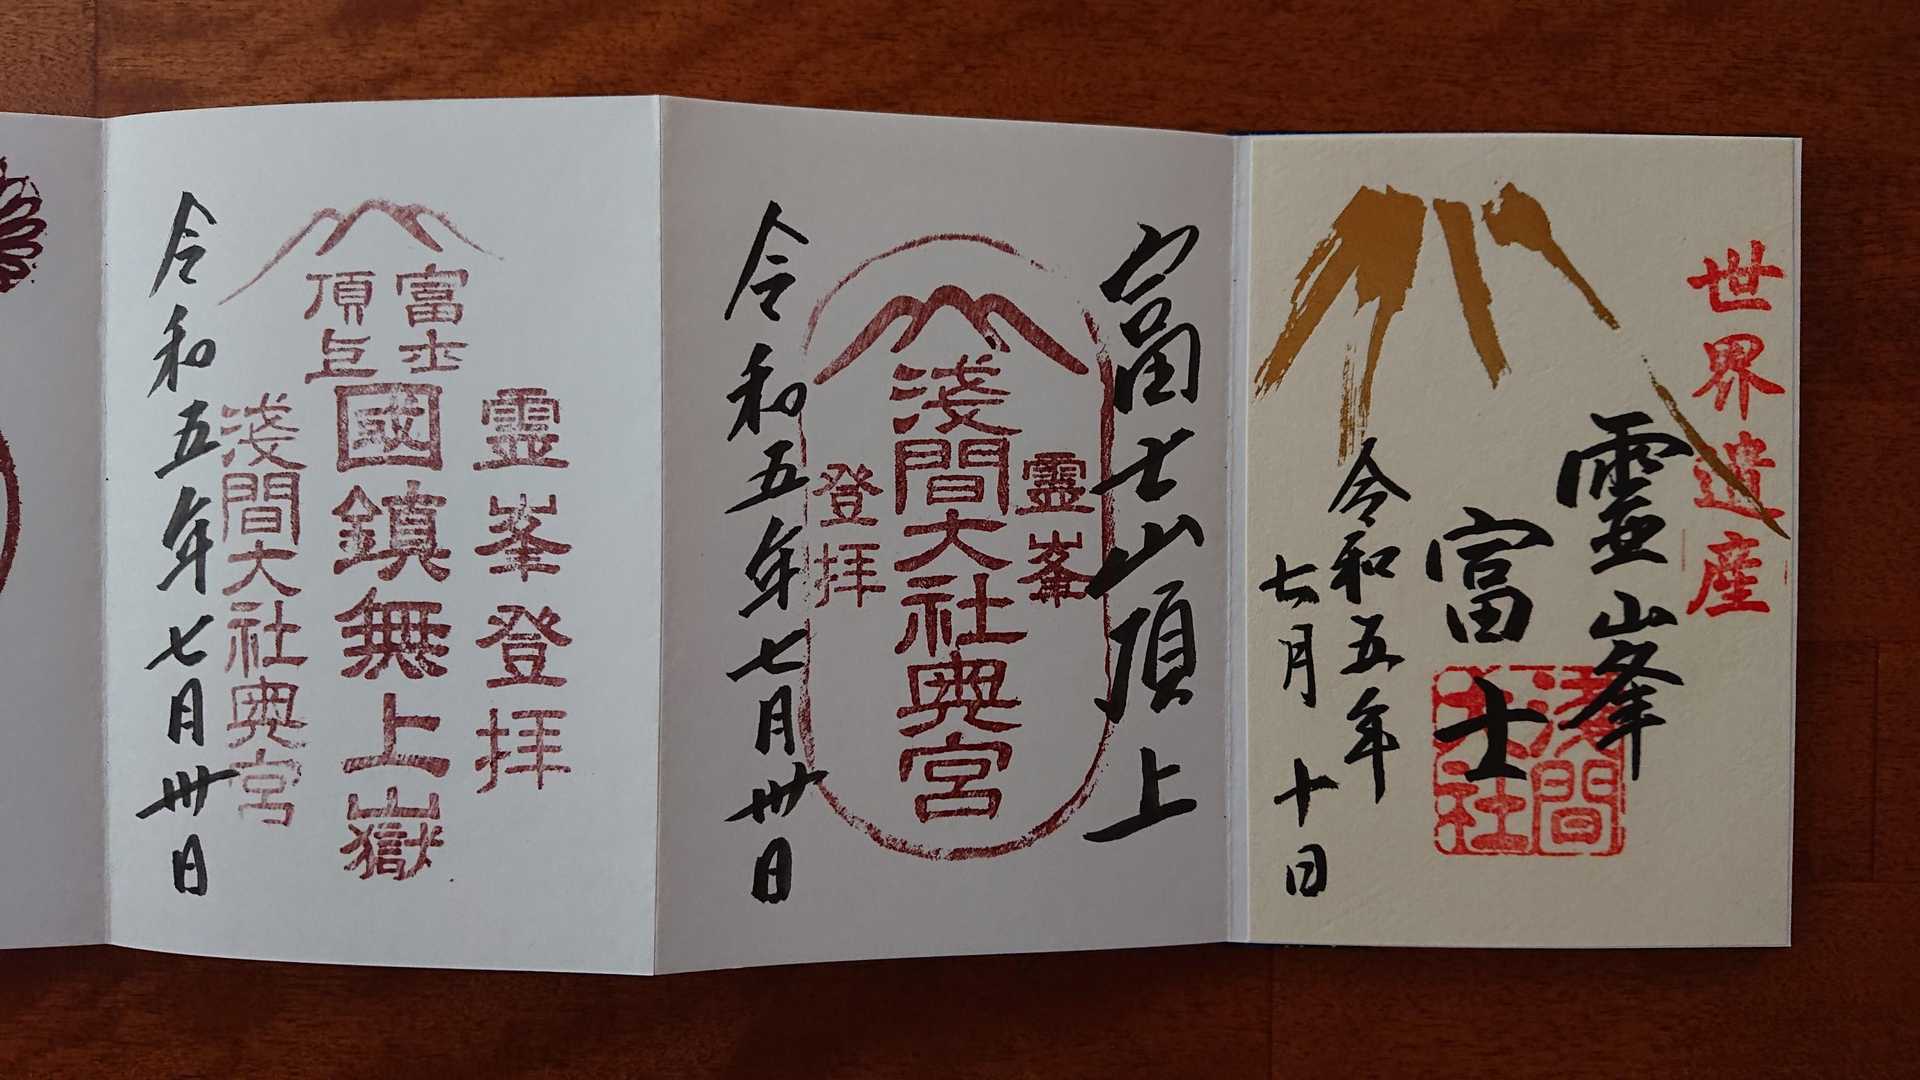 世界遺産
霊峯
富士
浅間
大社
令和五年
七月十日
富士山頂上
霊峯
浅間大社奥宮
登拝
令和五年七月卅日
霊峯登拝
富士
頂上
國鎮無上嶽
浅間大社奥宮
令和五年七月卅日